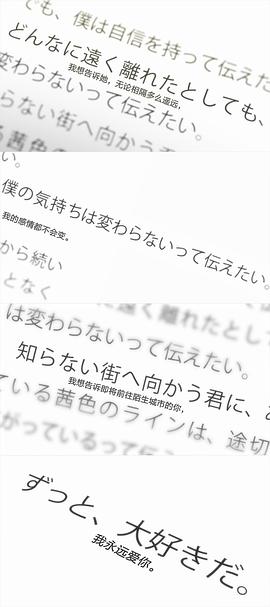 でも、僕は自信を持って伝えた
どんなに遠く離れたとしても、
我想告诉她，无论相隔多么遥远，
変わらないって伝えたい。
らない街へ向かう
る茜色の
い。
僕の気持ちは変わらないって伝えたい。
我的感情都不会变。
から続い
となく
遠く離れたとし
は変わらないって伝えたい。
知らない街へ向かう君に、
我想告诉即将前往陌生城市的你，
ている茜色のラインは、途切
がっているって伝
ずっと、大好きだ。
我永远爱你。